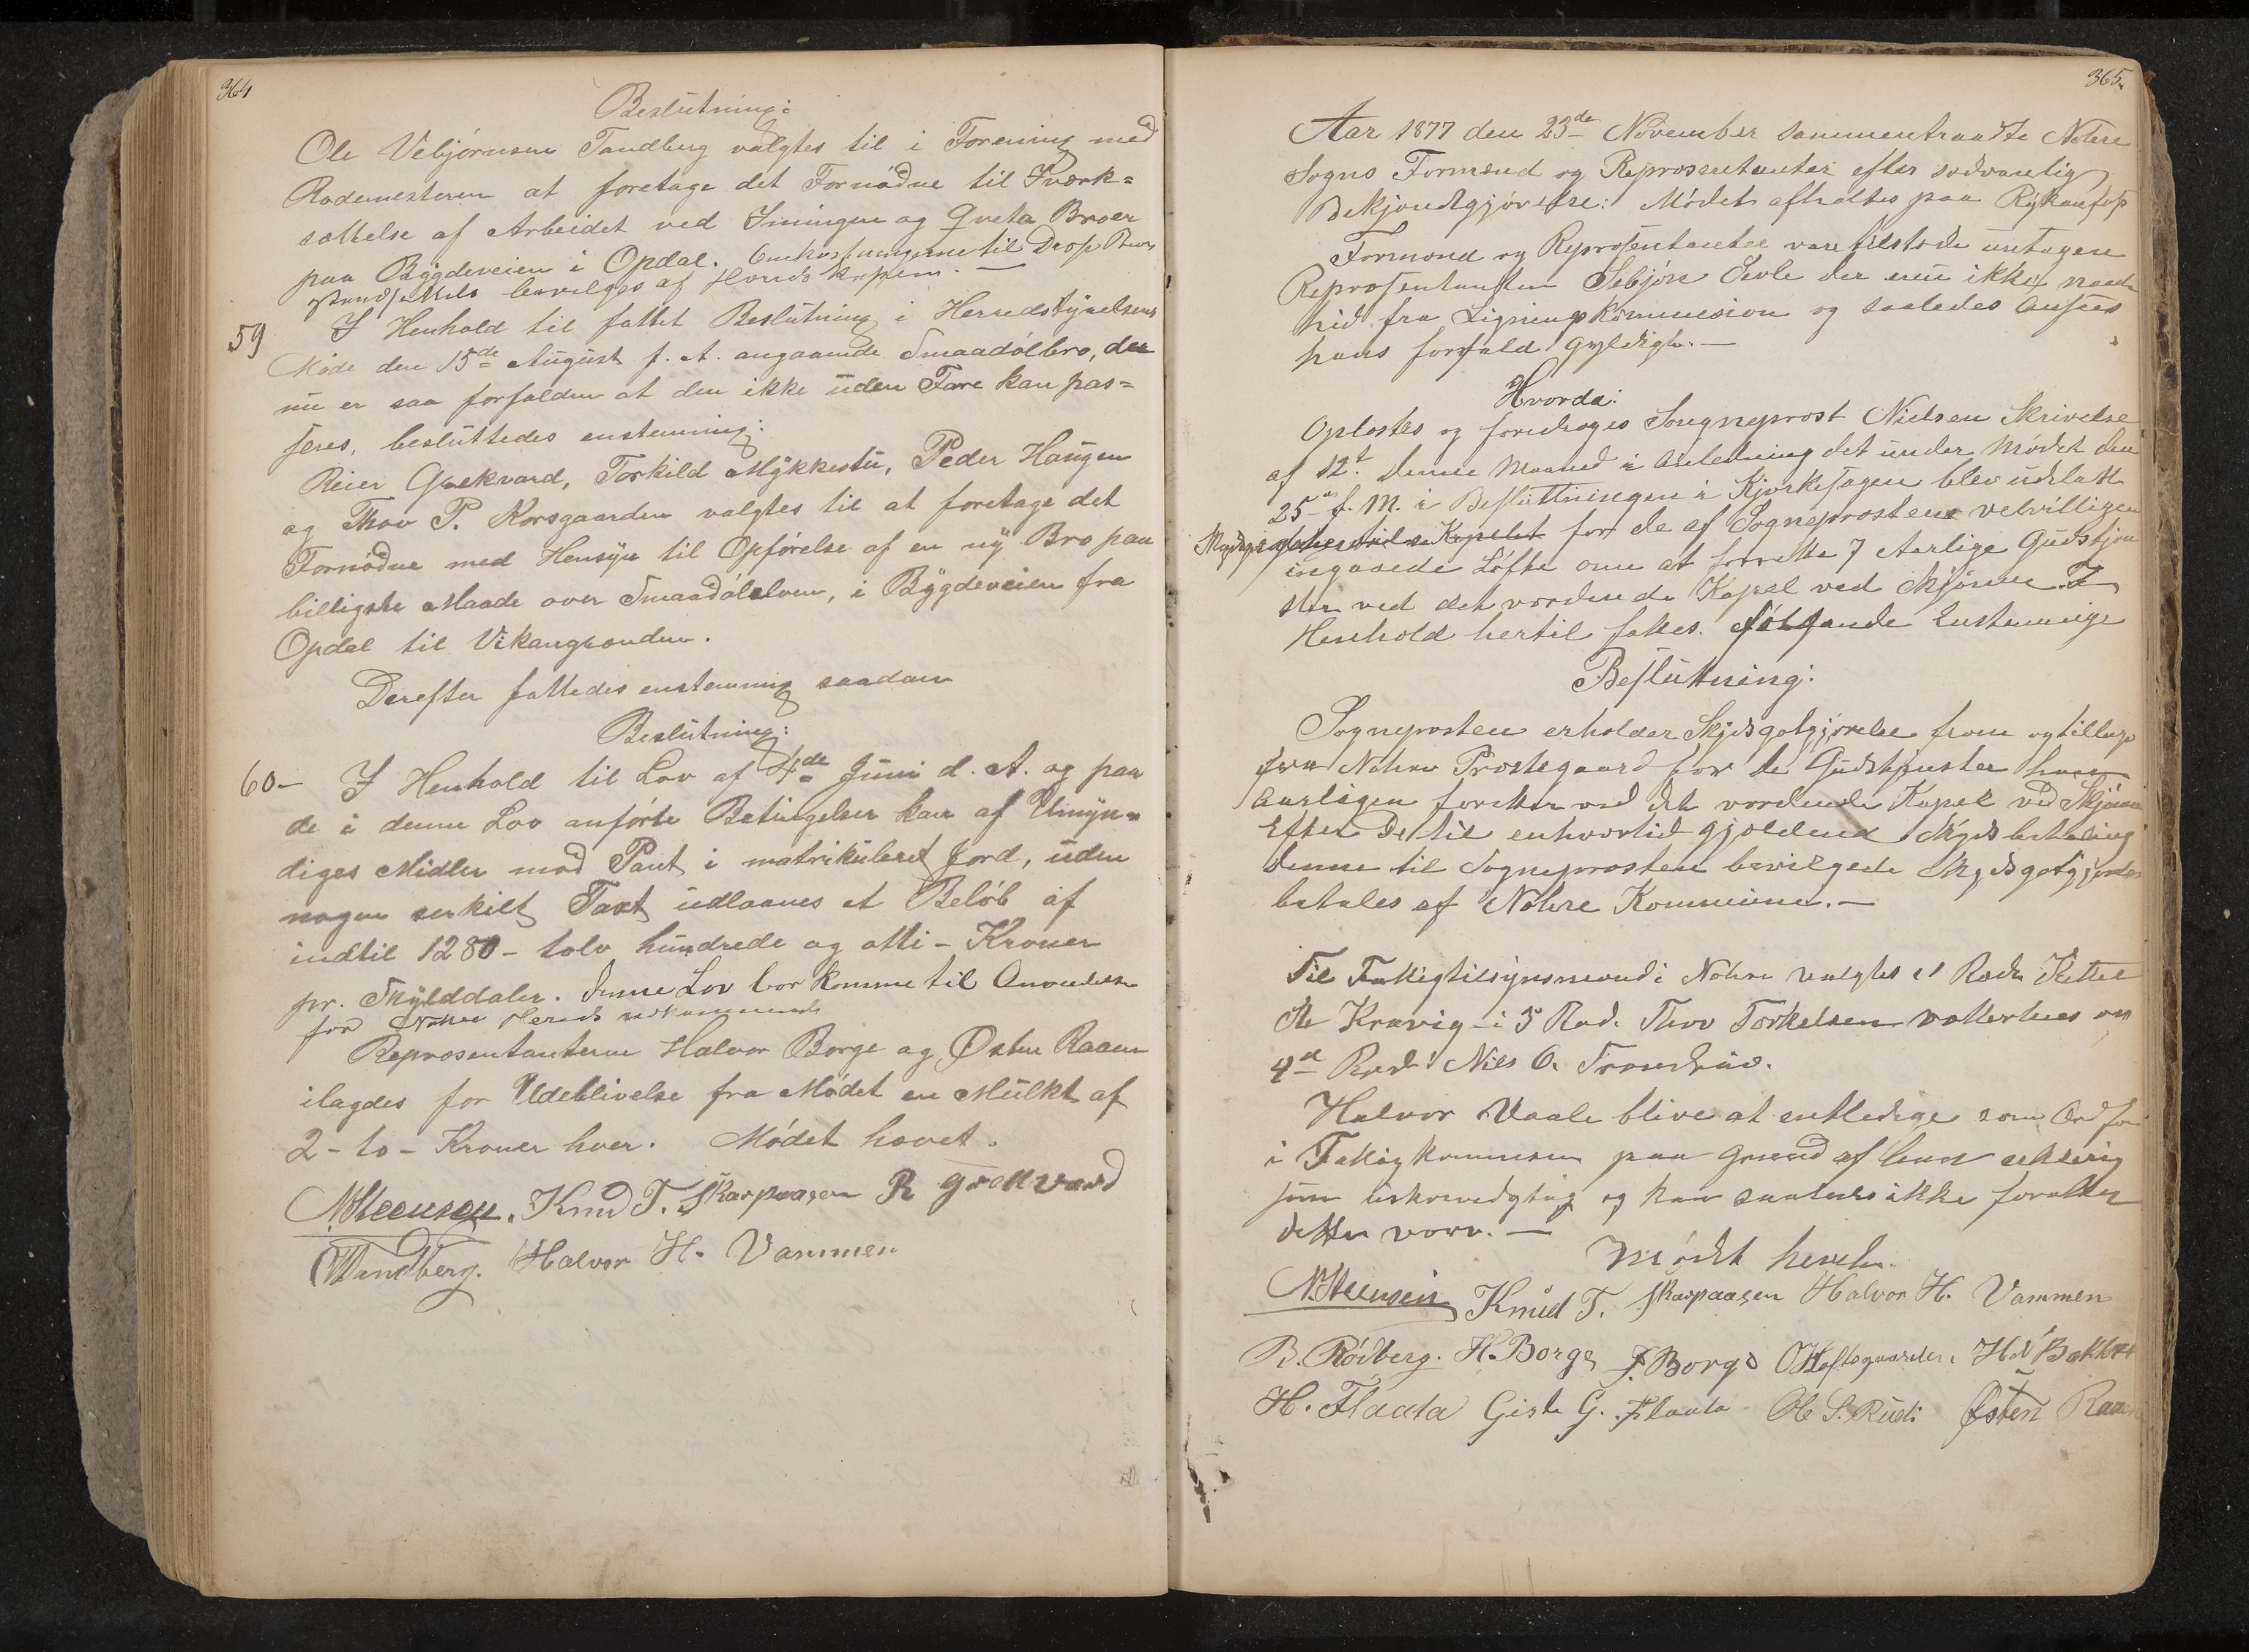 364
Beslutning:
Ole Vebjørnsen Tandberg valgtes til i Forening med
Rodemesteren at foretage det Fornødne til Iværk=
sættelse af Arbeidet ved Imingen og Qveta Broer
paa Bygdeveien i Opdal. Omkostningerne til Disse Broers
Istandsættelse bevilges af Herreds kassen. —
59 I Henhold til fattet Beslutning i Herredstyrelsens
Møde den 15de August f. A. angaaende Smaadølbro, der
nu er saa forfalden at den ikke uden Fare kan pas=
seres, besluttedes enstemmig:
Reier Grækvard, Torkild Mykkestu, Peder Haugen
og Thov P. Korsgaarden valgtes til at foretage det
Fornødne med Hensyn til Opførelse af en ny Bro paa
billigste Maade over Smaadølelven, i Bygdeveien fra
Opdal til Vikangrænden.
Derefter fattedes enstemmig saadan
Beslutning:
60- I Henhold til Lov af 4de Juni d. A. og paa
de i denne Lov anførte Betingelser kan af Umyn=
diges Midler mod Pant i matrikuleret Jord, uden
nogen serkilt Taxt udlaanes et Beløb af
indtil 1280 - tolv hundrede og otti - Kroner
pr. Skylddaler. Denne Lov bør komme til Anvendelse
for Nore Herreds vedkommende
Repræsentanterne Halvor Borge og Østen Raaen
ilagdes for Udeblivelse fra Mødet en Mulkt af
2 - to - Kroner hver. Mødet hævet.
N Steensen. Knud T. Skarpaasen R Grækvard
O Tandberg. Halvor H. Vammen
365.
Aar 1877 den 23de November sammentraadte Nohre
Sogns Formænd og Repræsentanter efter sædvanlig
Bekjendtgjørelse: Mødet afholdtes paa Rykansfos
Formænd og Repræsentanter vare tilstede untagen
Repræsentanten Sebjørn Sevle der enu ikke naade
hid fra Ligningskommision og saaledes Ansees
hans forfald gyldigt. —
Hvorda:
Oplæstes og foredroges Sogneprost Nielsen Skrivelse
af 12t denne Maaned i Anledning det under Mødet den
25 f. M. i Beslutningen i Kjerkesagen blev udelatt
for de af Sogneprosten velvilligen
ingaaede Løfte om at forrette 7 Aarlige Gudstjen
ster ved det vordende Kapel ved Skjønne. I
Henhold hertil fattes følgende Enstemmige
Beslutning:
Sogneprosten erholder Skydsgotgjørelse frem og tilbage
fra Nohre Prostegaard for de Gudstjenster han
Aarligen forretter ved det vordende Kapel ved Skjønne
Efter De til enhvertid gjeldend Skydsbetaling
denne til Sogneprosten bevilgede Skydsgotgjørelse
betales af Nohre Kommune. —
Til Fattigtilsynsmænd i Nohre valgtes i 1 Rode Kittel
Ole Kravig - i 3 Rod. Thov Torkelsen og
4de Rode Nils O. Tronsrud.
Halvor Vaale blive at entledige som Ordfør
i Fattigkommisionen paa Grund af hans erklering
som og kan saaledes ikke forestaa
dette værv. —
Mødet hevet.
N. Steensen Knud T. Skarpaasen Halvor H. Vammen
B. Rødberg. H. Borge F. Borge O Toftsgaarden. H. Bakken
H. Flaata Gisle G. Flaata Ole S. Rudi Østen Raaen